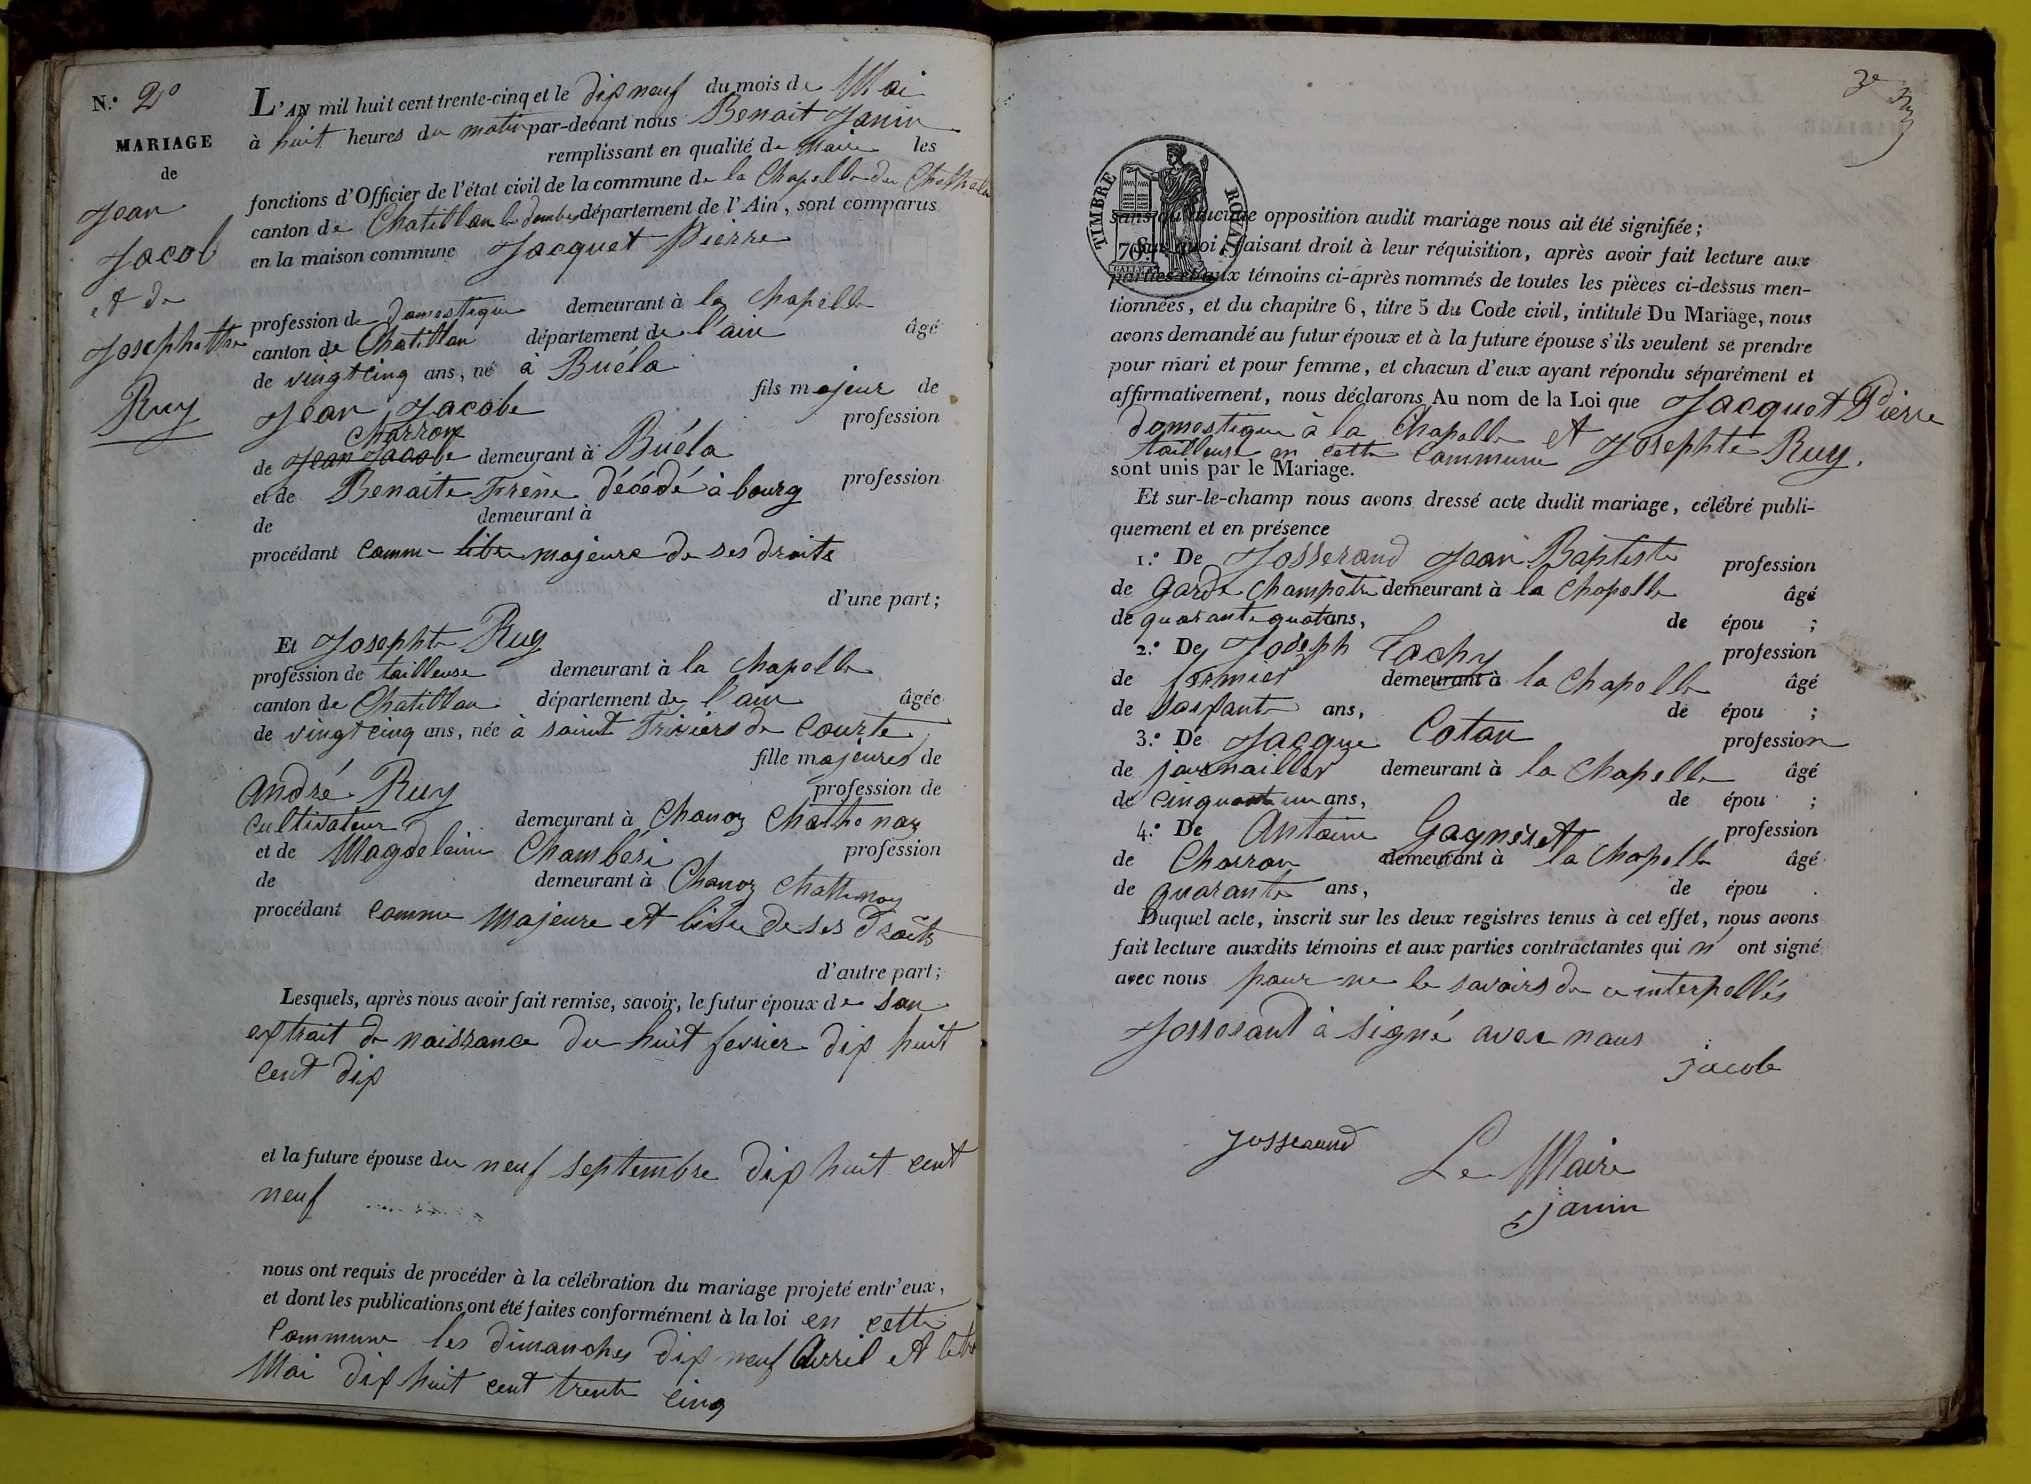 N.° 2°
MARIAGE
de
Jean
Jacob
et de
Josephette
Ruy
L'AN mil huit cent trente-cinq et le dix neuf du mois de Mai
à huit heures du matin par-devant nous Benait Janin
remplissant en qualité de Maire les
fonctions d'Officier de l'état civil de la commune de la Chapelle du Chattelar
canton de Chatillon département de l'Ain, sont comparus
en la maison commune Jacquet Pierre
profession de domestique demeurant à la Chapelle
canton de Chatillon département de l'ain âgé
de vingt cinq ans, né à Buéla
fils majeur de
Jean Jacobe profession
Charron
de Jean Jacobe demeurant à Buéla
et de Benaite Frène décédé à bourg profession
de demeurant à
procédant comme libre majeure de ses droits
d'une part;
Et Josephte Ruy
profession de tailleuse demeurant à la Chapelle
canton de Chatillon département de l'ain âgée
de vingt cinq ans, née à saint Triviers de Courte
fille majeure de
André Ruy profession de
Cultivateur demeurant à Chanoz Chattenay
et de Magdelaine Chamberi profession
de demeurant à Chanoz Chattenay
procédant comme majeure et libre de ses droits
d'autre part;
Lesquels, après nous avoir fait remise, savoir, le futur époux de son
extrait de naissance du huit fevrier dix huit
cent dix
et la future épouse du neuf septembre dix huit cent
neuf
nous ont requis de procéder à la célébration du mariage projeté entr'eux,
et dont les publications ont été faites conformément à la loi en cette
commune les dimanches dix neuf Avril et le
Mai dix huit cent trente cinq
3e
TIMBRE ROYAL
70
sans qu'aucune opposition audit mariage nous ait été signifiée;
Sur quoi, faisant droit à leur réquisition, après avoir fait lecture aux
parties et aux témoins ci-après nommés de toutes les pièces ci-dessus men-
tionnées, et du chapitre 6, titre 5 du Code civil, intitulé Du Mariage, nous
avons demandé au futur époux et à la future épouse s'ils veulent se prendre
pour mari et pour femme, et chacun d'eux ayant répondu séparément et
affirmativement, nous déclarons Au nom de la Loi que Jacquet Pierre
domestique à la Chapelle et Josephte Ruy.
tailleuse en cette commune
sont unis par le Mariage.
Et sur-le-champ nous avons dressé acte dudit mariage, célébré publi-
quement et en présence
1.° De Josserand Jean Baptiste profession
de Garde Champètre demeurant à la Chapelle âgé
de quarante quatre ans, de épou ;
2.° De Joseph Cachy profession
de fermier demeurant à la Chapelle âgé
de soixante ans, de épou ;
3.° De Jacque Cotan profession
de journaillier demeurant à la Chapelle âgé
de cinquante un ans, de épou ;
4.° De Antoine Gagneret profession
de Charron demeurant à la Chapelle âgé
de quarante ans, de épou .
Duquel acte, inscrit sur les deux registres tenus à cet effet, nous avons
fait lecture auxdits témoins et aux parties contractantes qui n' ont signé
avec nous pour ne le savoirs de ce interpellés
Josserant à signé avec nous
jacob
Josserand
Le Maire
janin